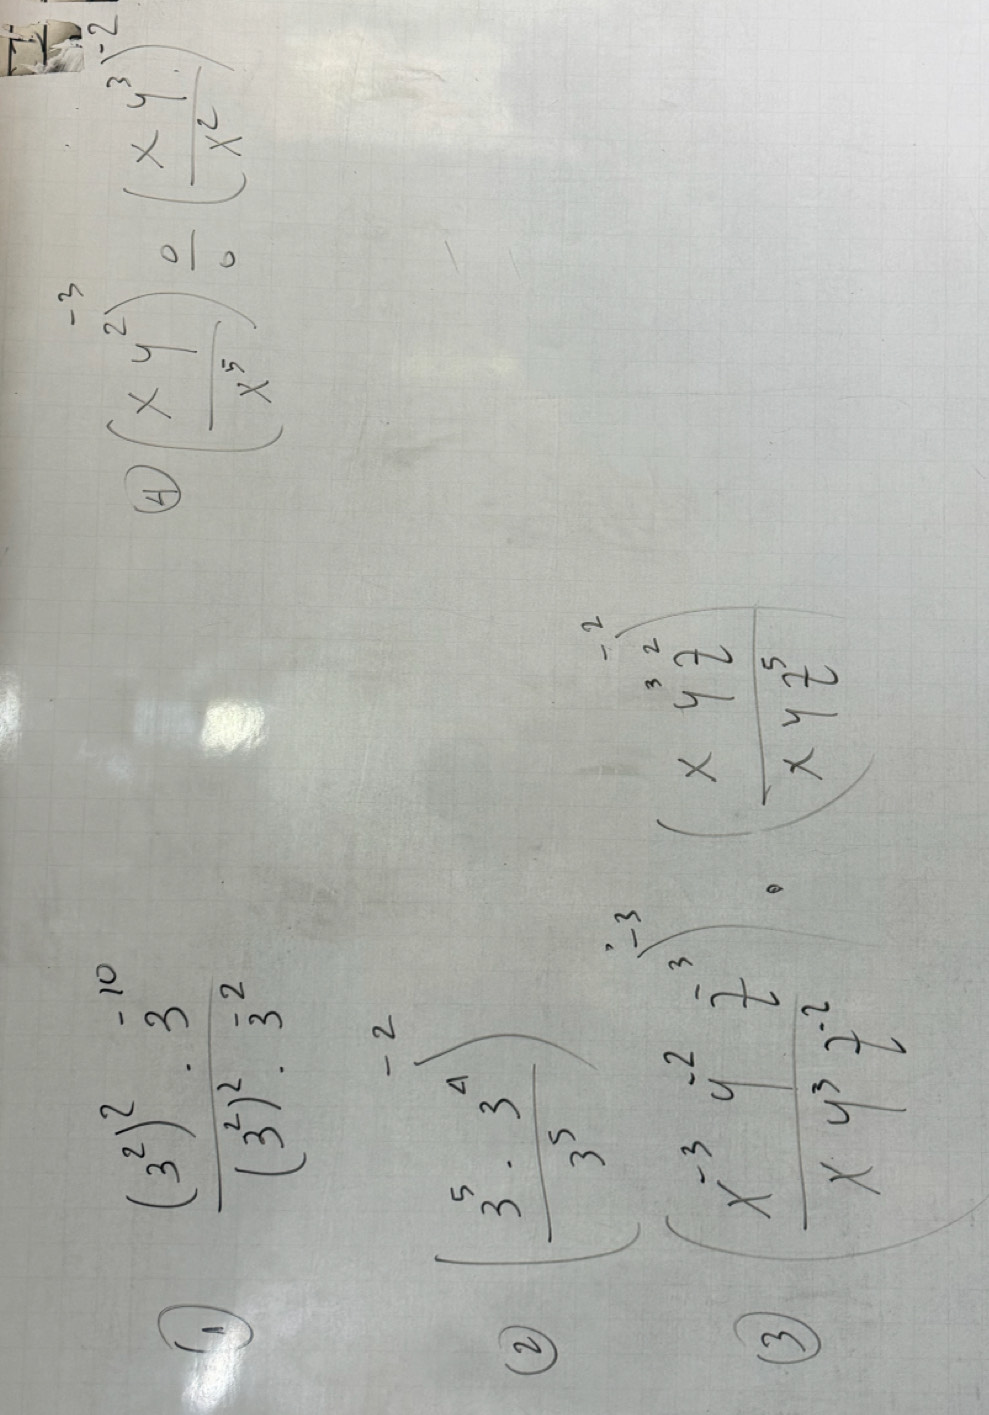 ① (3²)² · 3⁻¹⁰
(3²)² · 3⁻²
② (3⁵ · 3⁴)⁻²
3⁵
③ (x⁻³ y⁻² z⁻³)⁻³ · (x y³ z²)⁻²
x y³ z⁻² x y z⁵
④ (x y²)⁻³ ÷ (x y³)⁻²
x⁵ x²